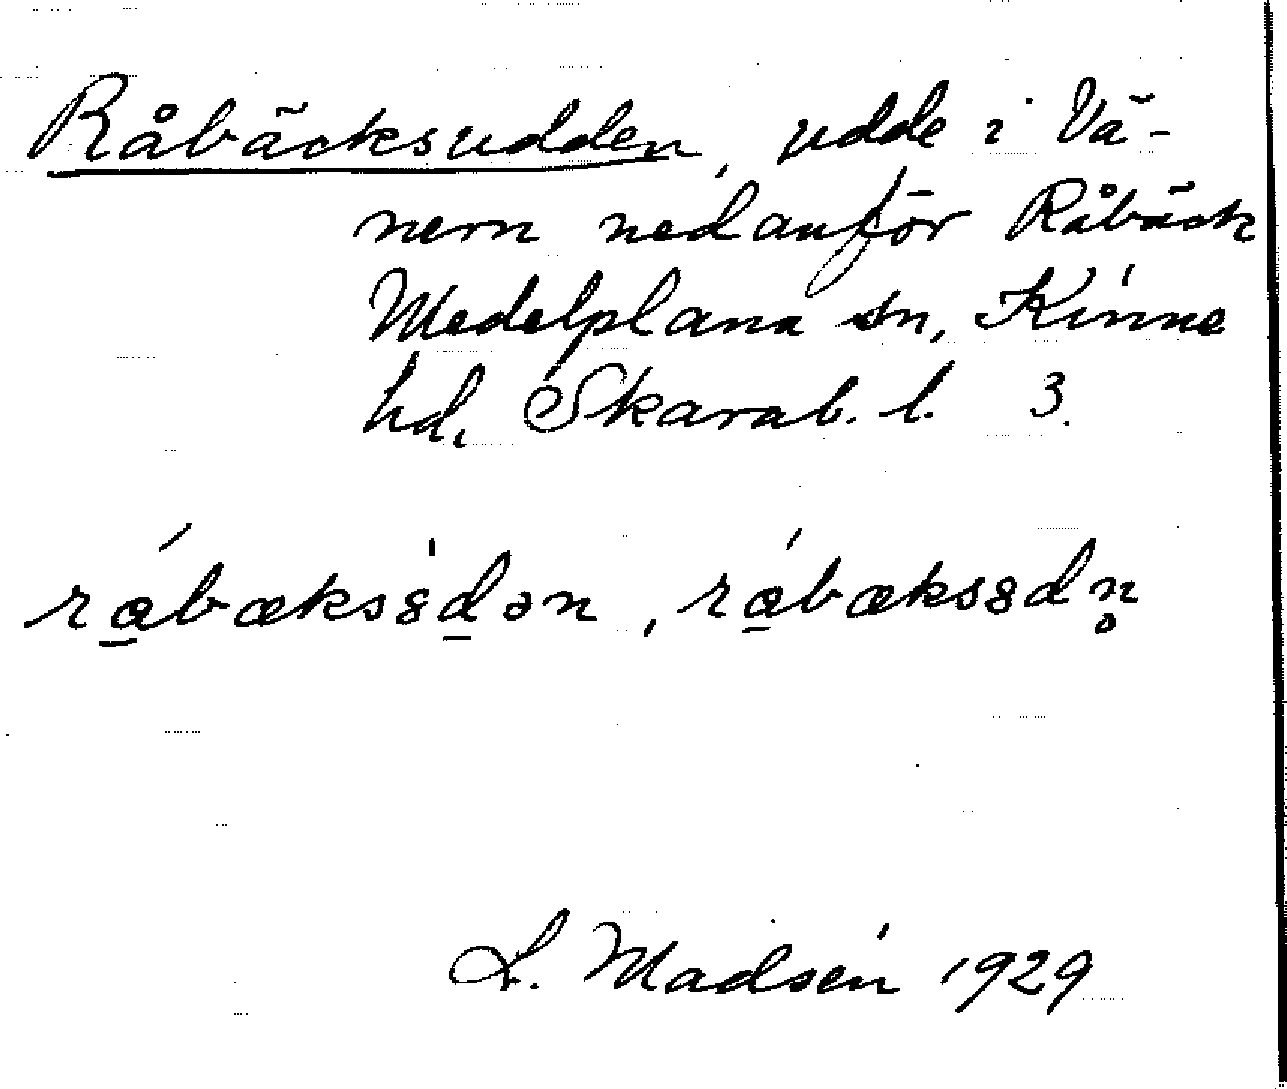 Råbäcksudden, udde i Vä-
nern nedanför Råbäck
Medelplana sn, Kinne
hd, Skarab. l. 3.
rǻ̱bækss8̍ḏən, rǻ̱bæks8dn̥
L. Madsén 1929